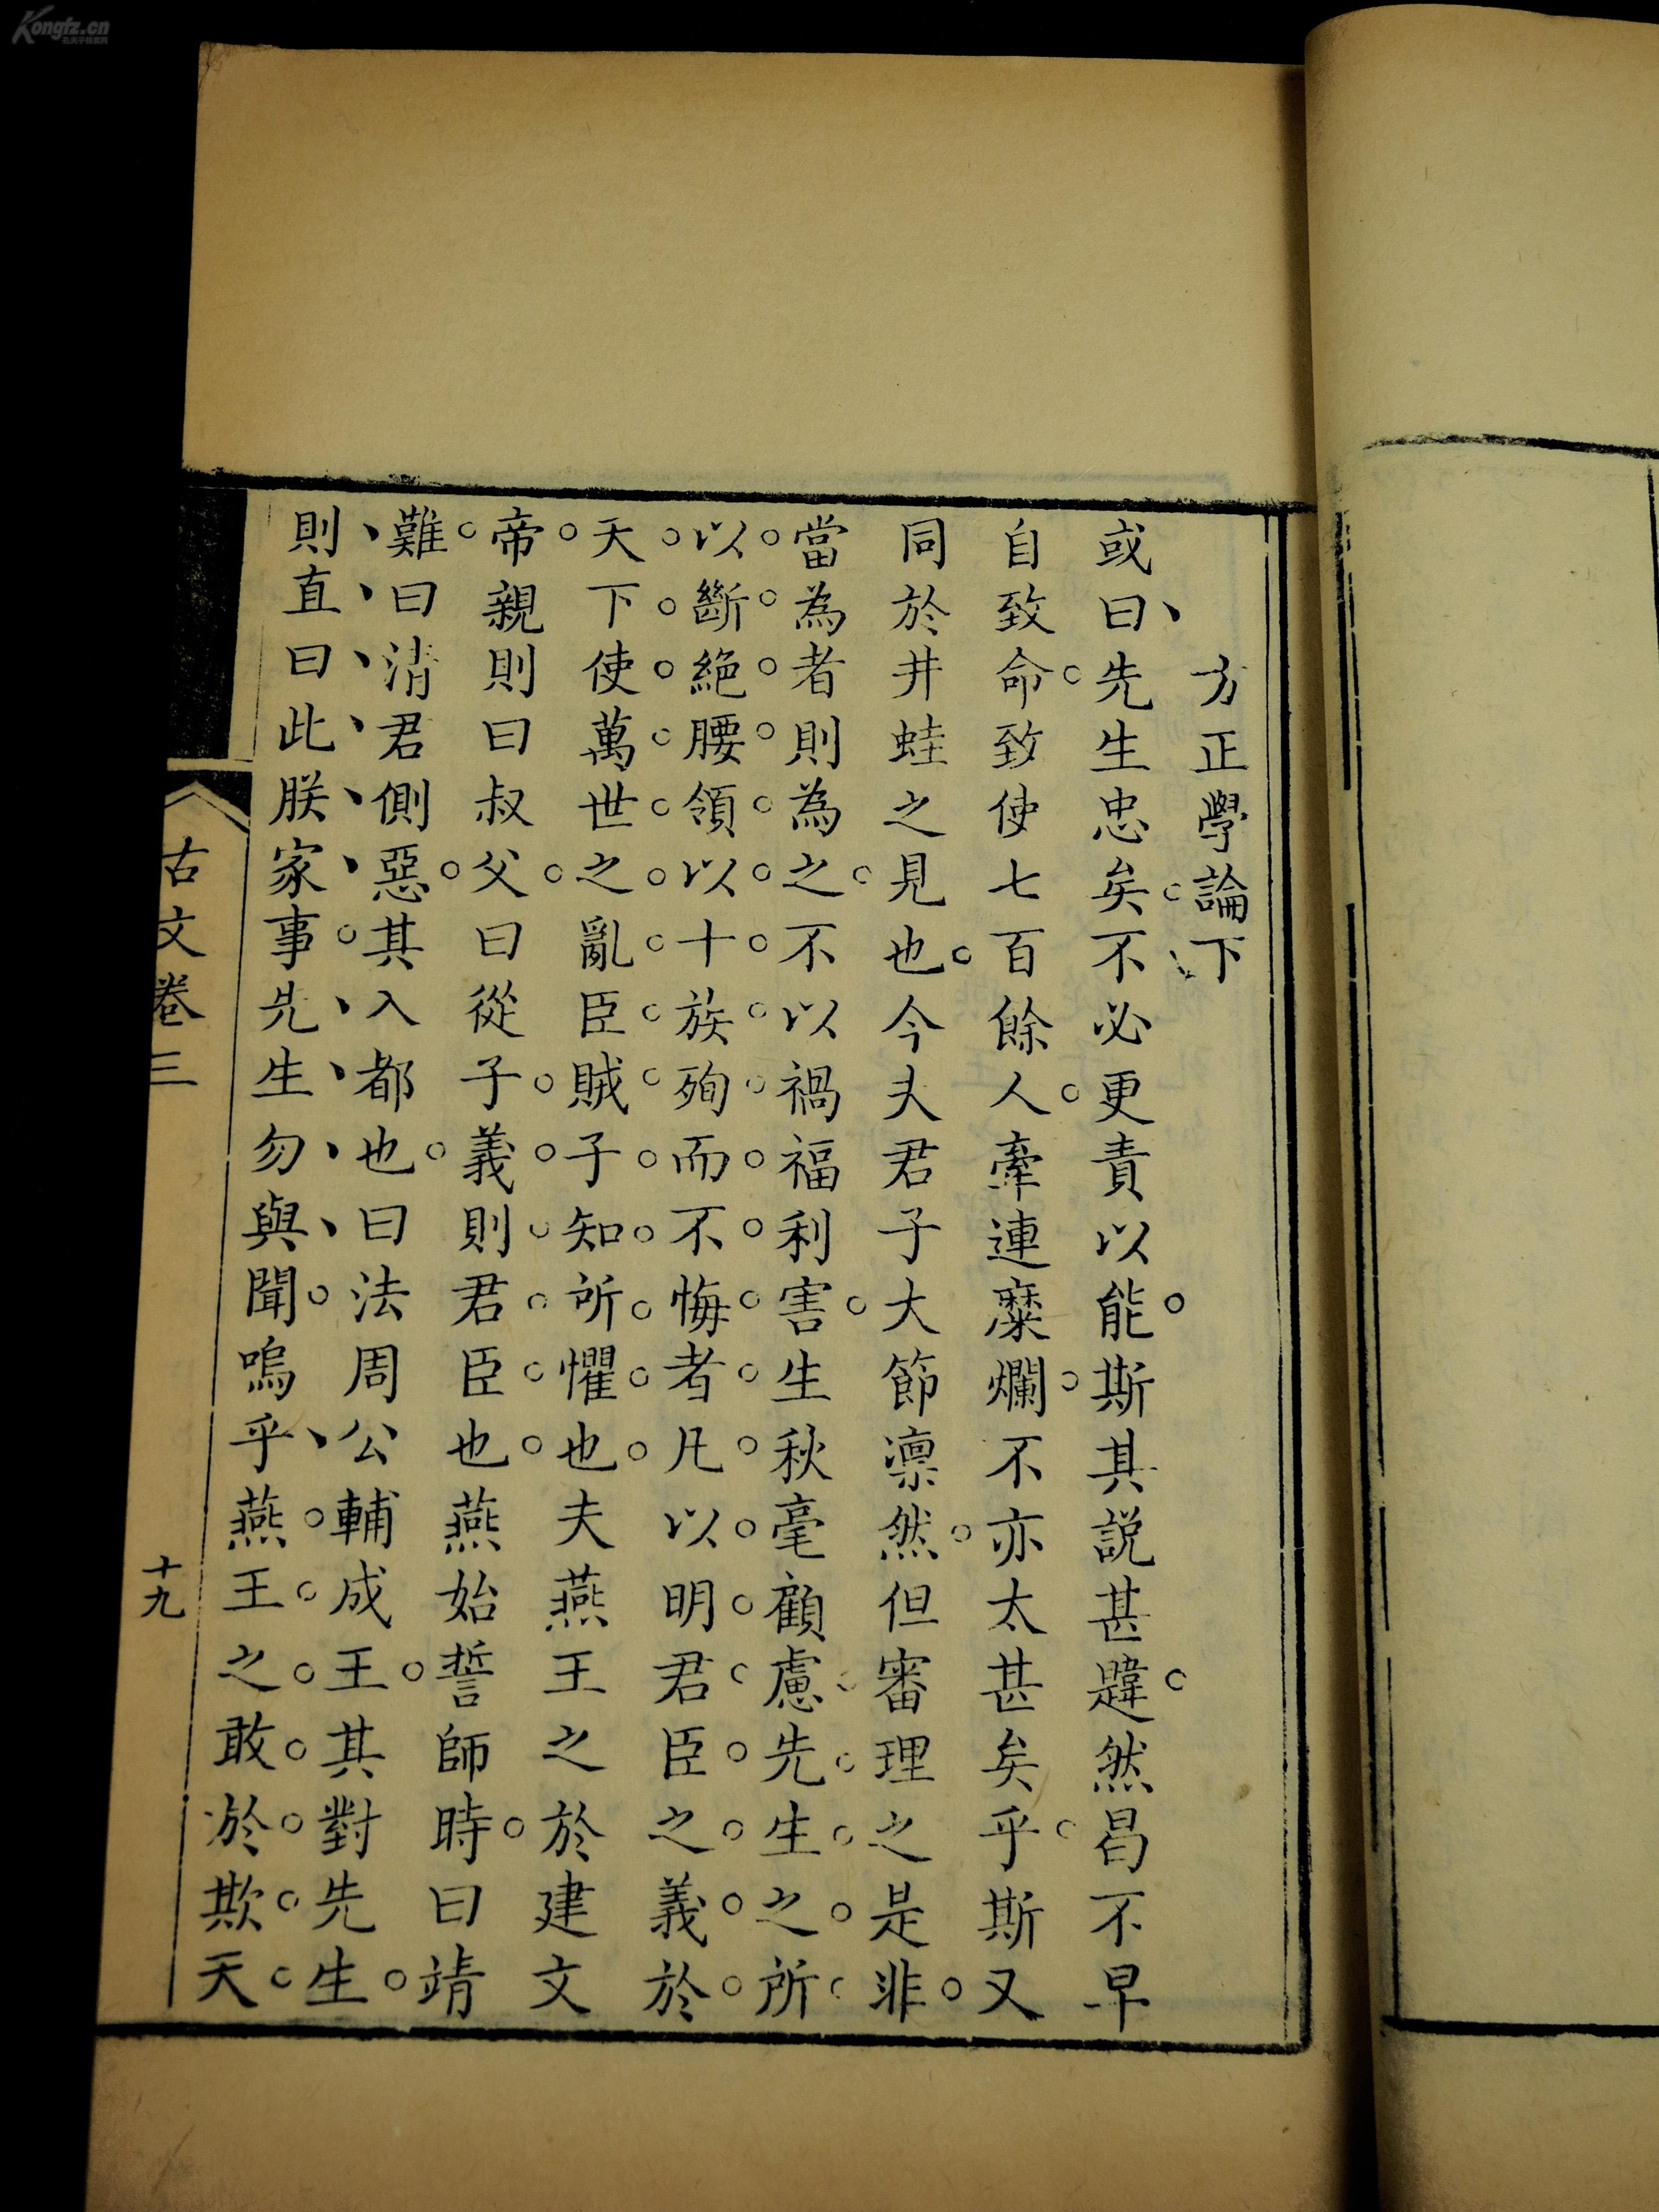 方正學論下
或曰先生忠矣不必更責以能斯其説甚韙然曷不早
自致命致使七百餘人牽連糜爛不亦太甚矣乎斯又
同於井蛙之見也今夫君子大節凛然但審理之是非
當為者則為之不以禍福利害生秋毫顧慮先生之所
以斷絶腰領以十族殉而不悔者凡以明君臣之義於
天下使萬世之亂臣賊子知所懼也夫燕王之於建文
帝親則曰叔父曰從子義則君臣也燕始誓師時曰靖
難曰清君側惡其入都也曰法周公輔成王其對先生
則直曰此朕家事先生勿與聞嗚乎燕王之敢於欺天
古文卷三
十九
Kongfz.cn
孔夫子旧书网